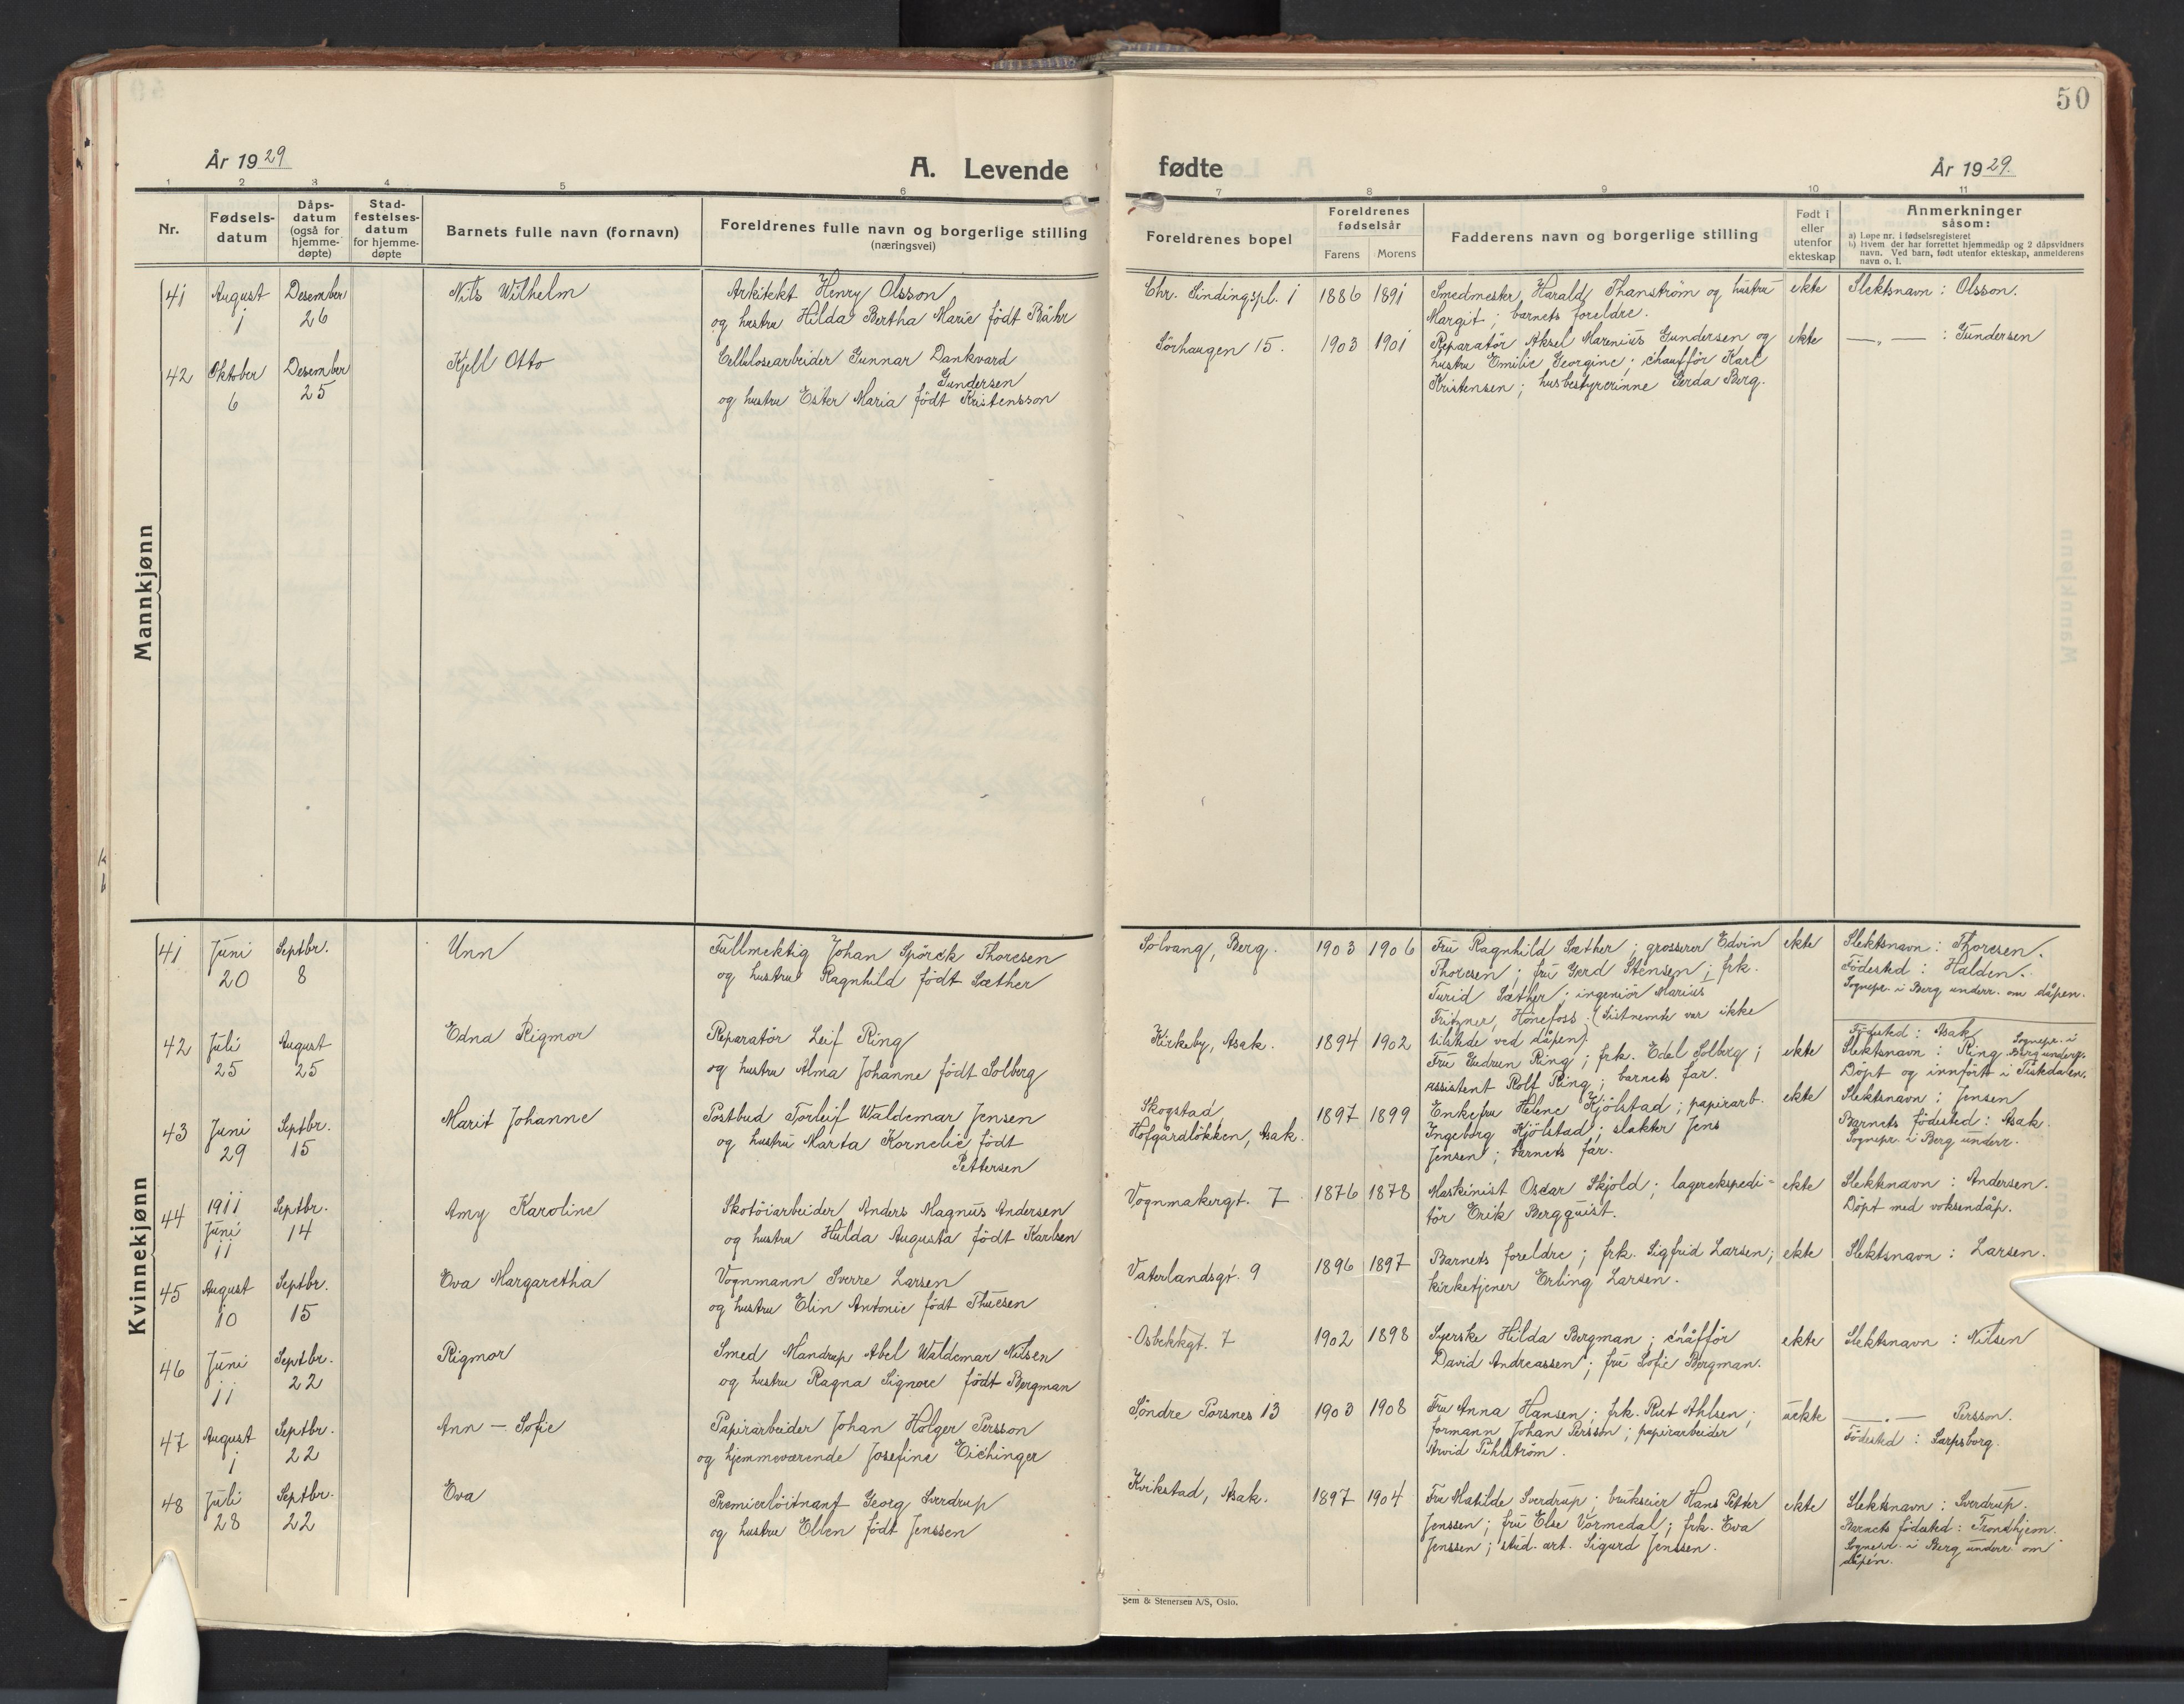 50
År 1929
A. Levende fødte
År 1929.
1 2 3 4 5 6 7 8 9 10 11
Nr.
Fødsels-
datum
Dåps-
datum
(også for
hjemme-
døpte)
Stad-
festelses-
datum
for hjemme-
døpte
Barnets fulle navn (fornavn)
Foreldrenes fulle navn og borgerlige stilling
(næringsvei)
Foreldrenes bopel
Foreldrenes
fødselsår
Farens Morens
Fadderens navn og borgerlige stilling
Født i
eller
utenfor
ekteskap
Anmerkninger
såsom:
a) Løpe nr. i fødselsregisteret
b) Hvem der har forrettet hjemmedåp og 2 dåpsvidners
navn. Ved barn, født utenfor ekteskap, anmelderens
navn o. l.
Mannkjønn
41
August
1
Desember
26
Nils Wilhelm
Arkitekt Henry Olsson
og hustru Hilda Bertha Marie født Båhr
Chr. Sindingspl. 1
1886 1891
Smedmester Harald Thanstrøm og hustru
Margit; barnets foreldre.
ekte
Slektsnavn: Olsson.
42
Oktober
6
Desember
25
Kjell Otto
Cellulosearbeider Gunnar Dankvard
Gundersen
og hustru Ester Maria født Kristensson
Sørhaugen 15.
1903 1901
Reparatør Aksel Marenius Gundersen og
hustru Emilie Georgine; chauffør Karl
Kristensen; husbestyrerinne Gerda Berg.
ekte
—„— : Gundersen
Kvinnekjønn
41
Juni
20
Septbr.
8
Unn
Fullmektig Johan Spörck Thoresen
og hustru Ragnhild født Sæther
Solvang, Berg.
1903 1906
Fru Ragnhild Sæther; grosserer Edvin
Thoresen; fru Gerd Stensen; frk.
Turid Sæther; ingeniør Marius
Fritzner, Hønefoss. (Sistnevnte var ikke
tilstede ved dåpen).
ekte
Slektsnavn: Thoresen.
Fødested: Halden.
Sognepr. i Berg underr. om dåpen.
42
Juli
25
August
25
Edna Rigmor
Reparatør Leif Ring
og hustru Alma Johanne født Solberg
Kirkeby, Asak.
1894 1902
Fru Gudrun Ring; frk. Edel Solberg;
assistent Rolf Ring; barnets far.
ekte
Fødested: Asak. Sognepr. i
Slektsnavn: Ring. Berg underr.
Døpt og innført i Tistedalen.
43
Juni
29
Septbr.
15
Marit Johanne
Postbud Torleif Waldemar Jensen
og hustru Marta Kornelie født
Pettersen
Skogstad
Hofgårdløkken, Asak.
1897 1899
Enkefru Helene Kjølstad; papirarb.
Ingeborg Kjølstad; slakter Jens
Jensen; barnets far.
ekte
Slektsnavn: Jensen
Barnets fødested: Asak.
Sognepr. i Berg underr.
44
1911
Juni
11
Septbr.
14
Amy Karoline
Skotøiarbeider Anders Magnus Andersen
og hustru Hulda Augusta født Karlsen
Vognmakergt. 7
1876 1878
Maskinist Oscar Skjold; lagerekspedi-
tør Erik Bergquist.
ekte
Slektsnavn: Andersen.
Døpt med voksendåp.
45
August
10
Septbr.
15
Eva Margaretha
Vognmann Sverre Larsen
og hustru Elin Antonie født Thuesen
Vaterlandsgt. 9
1896 1897
Barnets foreldre; frk. Sigfrid Larsen;
kirketjener Erling Larsen.
ekte
Slektsnavn: Larsen.
46
Juni
11
Septbr.
22
Rigmor
Smed Mandrup Abel Waldemar Nilsen
og hustru Ragna Signore født Bergman
Osbekkgt. 7
1902 1898
Syerske Hilda Bergman; chåffør
David Andreassen; fru Sofie Bergman.
ekte
Slektsnavn: Nilsen
47
August
1
Septbr.
22
Ann-Sofie
Papirarbeider Johan Holger Persson
og hjemmeværende Josefine Eichinger
Søndre Porsnes 13
1903 1908
Fru Anna Hansen; frk. Rut Ahlsen;
formann Johan Persson; papirarbeider
Arvid Pihlstrøm.
uekte
—„— Persson.
Fødested: Sarpsborg.
48
Juli
28
Septbr.
22
Eva
Premierløitnant Georg Sverdrup
og hustru Ellen født Jenssen
Kvikstad, Asak.
1897 1904
Fru Matilde Sverdrup; brukseier Hans Petter
Jenssen; fru Else Vormedal; frk. Eva
Jenssen; stud. art. Sigurd Jenssen.
ekte
Slektsnavn: Sverdrup.
Barnets fødested: Trondhjem.
Sognepr. i Berg underr. om
dåpen.
Sem & Stenersen A/S, Oslo.